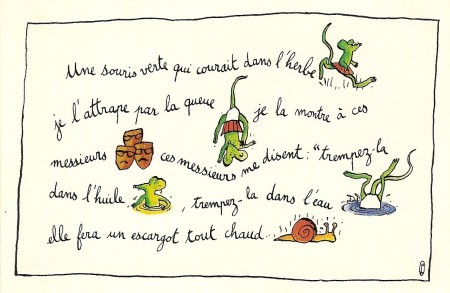 Une souris verte qui courait dans l'herbe
je l'attrape par la queue je la montre à ces
messieurs ces messieurs me disent : "trempez-la
dans l'huile , trempez-la dans l'eau
elle fera un escargot tout chaud